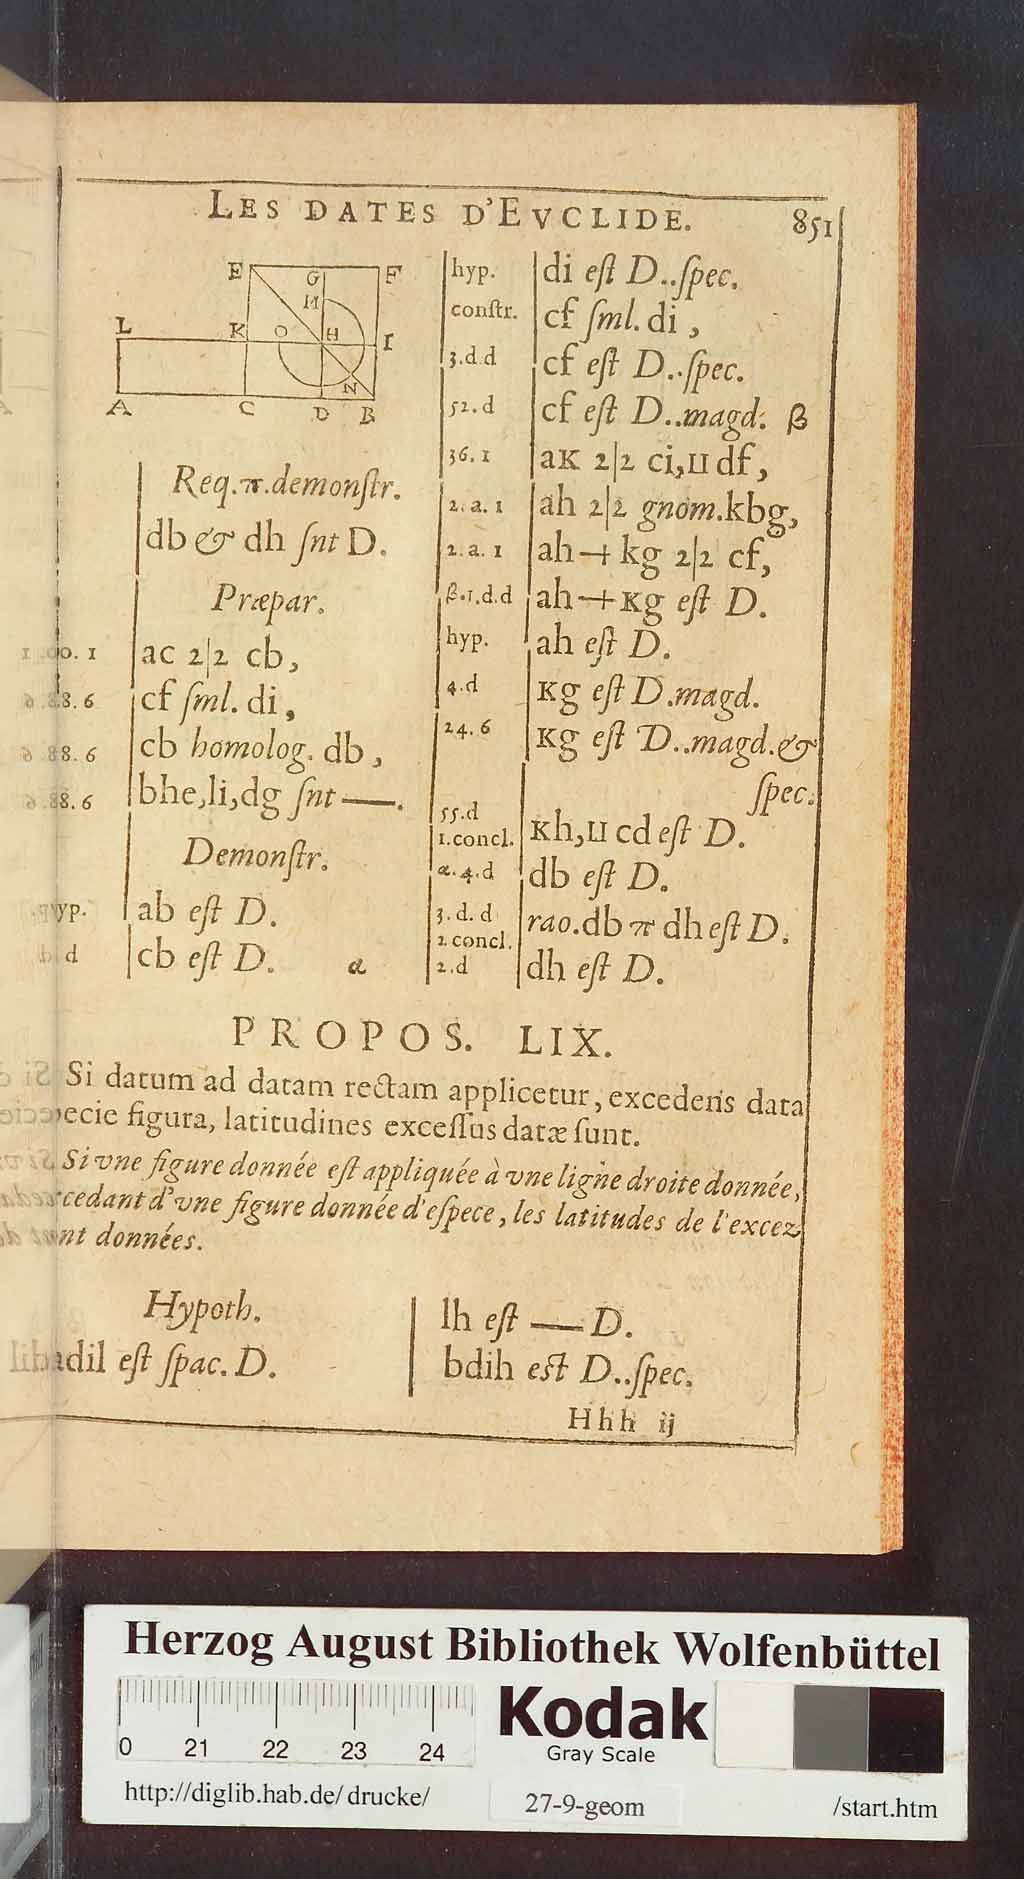 LES DATES D'EVCLIDE. 851
E G F
M
L K O H I
N
A C D B
Req. π. demonſtr.
db & dh ſnt D.
Præpar.
ac 2|2 cb,
88. 6 cf ſml. di,
88. 6 cb homolog. db,
88. 6 bhe, li, dg ſnt —.
Demonſtr.
yp. ab eſt D.
d cb eſt D. α
hyp. di eſt D..ſpec.
conſtr. cf ſml. di,
3.d.d cf eſt D..ſpec.
52.d cf eſt D..magd: β
36.1 aK 2|2 ci, II df,
2.a.1 ah 2|2 gnom. kbg,
2.a.1 ah + kg 2|2 cf,
β.1.d.d ah + Kg eſt D.
hyp. ah eſt D.
4.d Kg eſt D. magd.
24.6 Kg eſt D..magd. &
ſpec.
55.d
1.concl. Kh, II cd eſt D.
α.4.d db eſt D.
3.d.d rao. db π dh eſt D.
2.concl.
2.d dh eſt D.
PROPOS. LIX.
Si datum ad datam rectam applicetur, excedens data
ecie figura, latitudines exceſſus datæ ſunt.
Si vne figure donnée eſt appliquée à vne ligne droite donnée,
cedant d'vne figure donnée d'eſpece, les latitudes de l'excez
nt données.
Hypoth.
adil eſt ſpac. D.
lh eſt — D.
bdih eſt D..ſpec.
Hhh ij
Herzog August Bibliothek Wolfenbüttel
0 21 22 23 24
Kodak
Gray Scale
http://diglib.hab.de/drucke/ 27-9-geom /start.htm